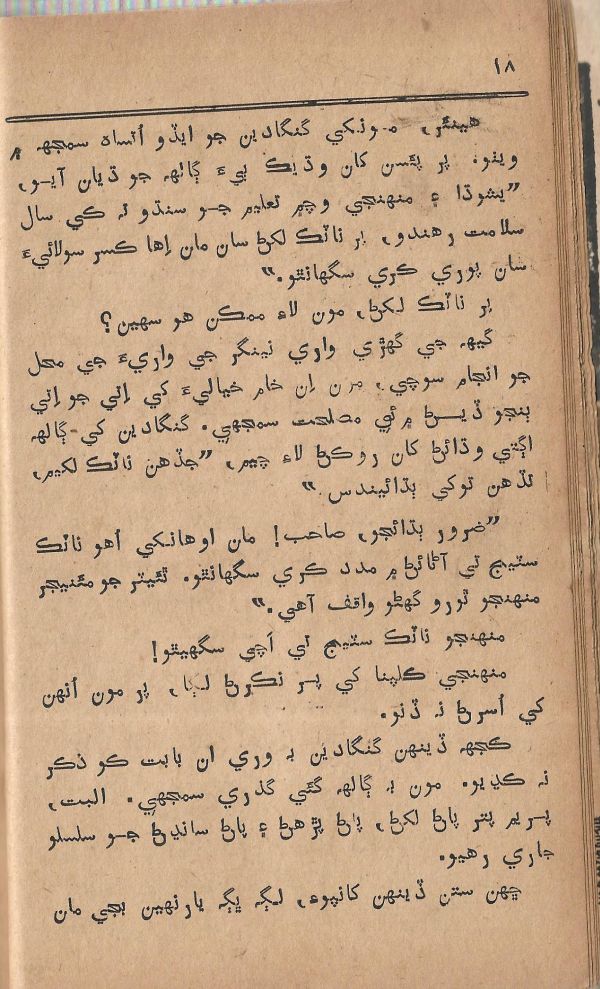 ١٨
هينئر، مونکي گنگادين جو ايڏو اُتساه سمجهه ۾
ويٺو. پر پئسن کان وڌيڪ ٻيءَ ڳالهه جو ڌيان آيو،
”يشوڌا ۽ منهنجي وچ۾ تعليم جو سنڌو ته ڪي سال
سلامت رهندو، پر ناٽڪ لکڻ سان مان اِها ڪسر سولائيءَ
سان پوري ڪري سگهانٿو.“
پر ناٽڪ لکڻ، مون لاءِ ممڪن هو سهين؟
گيهه جي گهڙي واري نينگر جي واريءَ جي محل
جو انجام سوچي، مون اِن خام خياليءَ کي اِتي جو اِتي
ٻنجو ڏيڻ ۾ ئي مصلحت سمجهي. گنگادين کي ڳالهه
اڳتي وڌائڻ کان روڪڻ لاءِ چيم، ”جڏهن ناٽڪ لکيم،
تڏهن توکي ٻڌائيندس.“
”ضرور ٻڌائجو، صاحب! مان اوهانکي اُهو ناٽڪ
سٽيج تي آڻائڻ ۾ مدد ڪري سگهانٿو. ٿئيٽر جو مئنيجر
منهنجو ٿورو گهڻو واقف آهي.“
منهنجو ناٽڪ سٽيج تي اَچي سگهيٿو!
منهنجي ڪلپنا کي پر نڪرڻ لڳا، پر مون اُنهن
کي اُسرڻ نه ڏنو.
ڪجهه ڏينهن گنگادين به وري ان بابت ڪو ذڪر
نه ڪڍيو. مون به ڳالهه گئي گذري سمجهي. البت،
پريم پتر پاڻ لکڻ، پاڻ پڙهڻ ۽ پاڻ سانڍڻ جو سلسلو
جاري رهيو.
ڇهن ستن ڏينهن کانپوءِ، لڳ ڀڳ يارنهين بجي مان